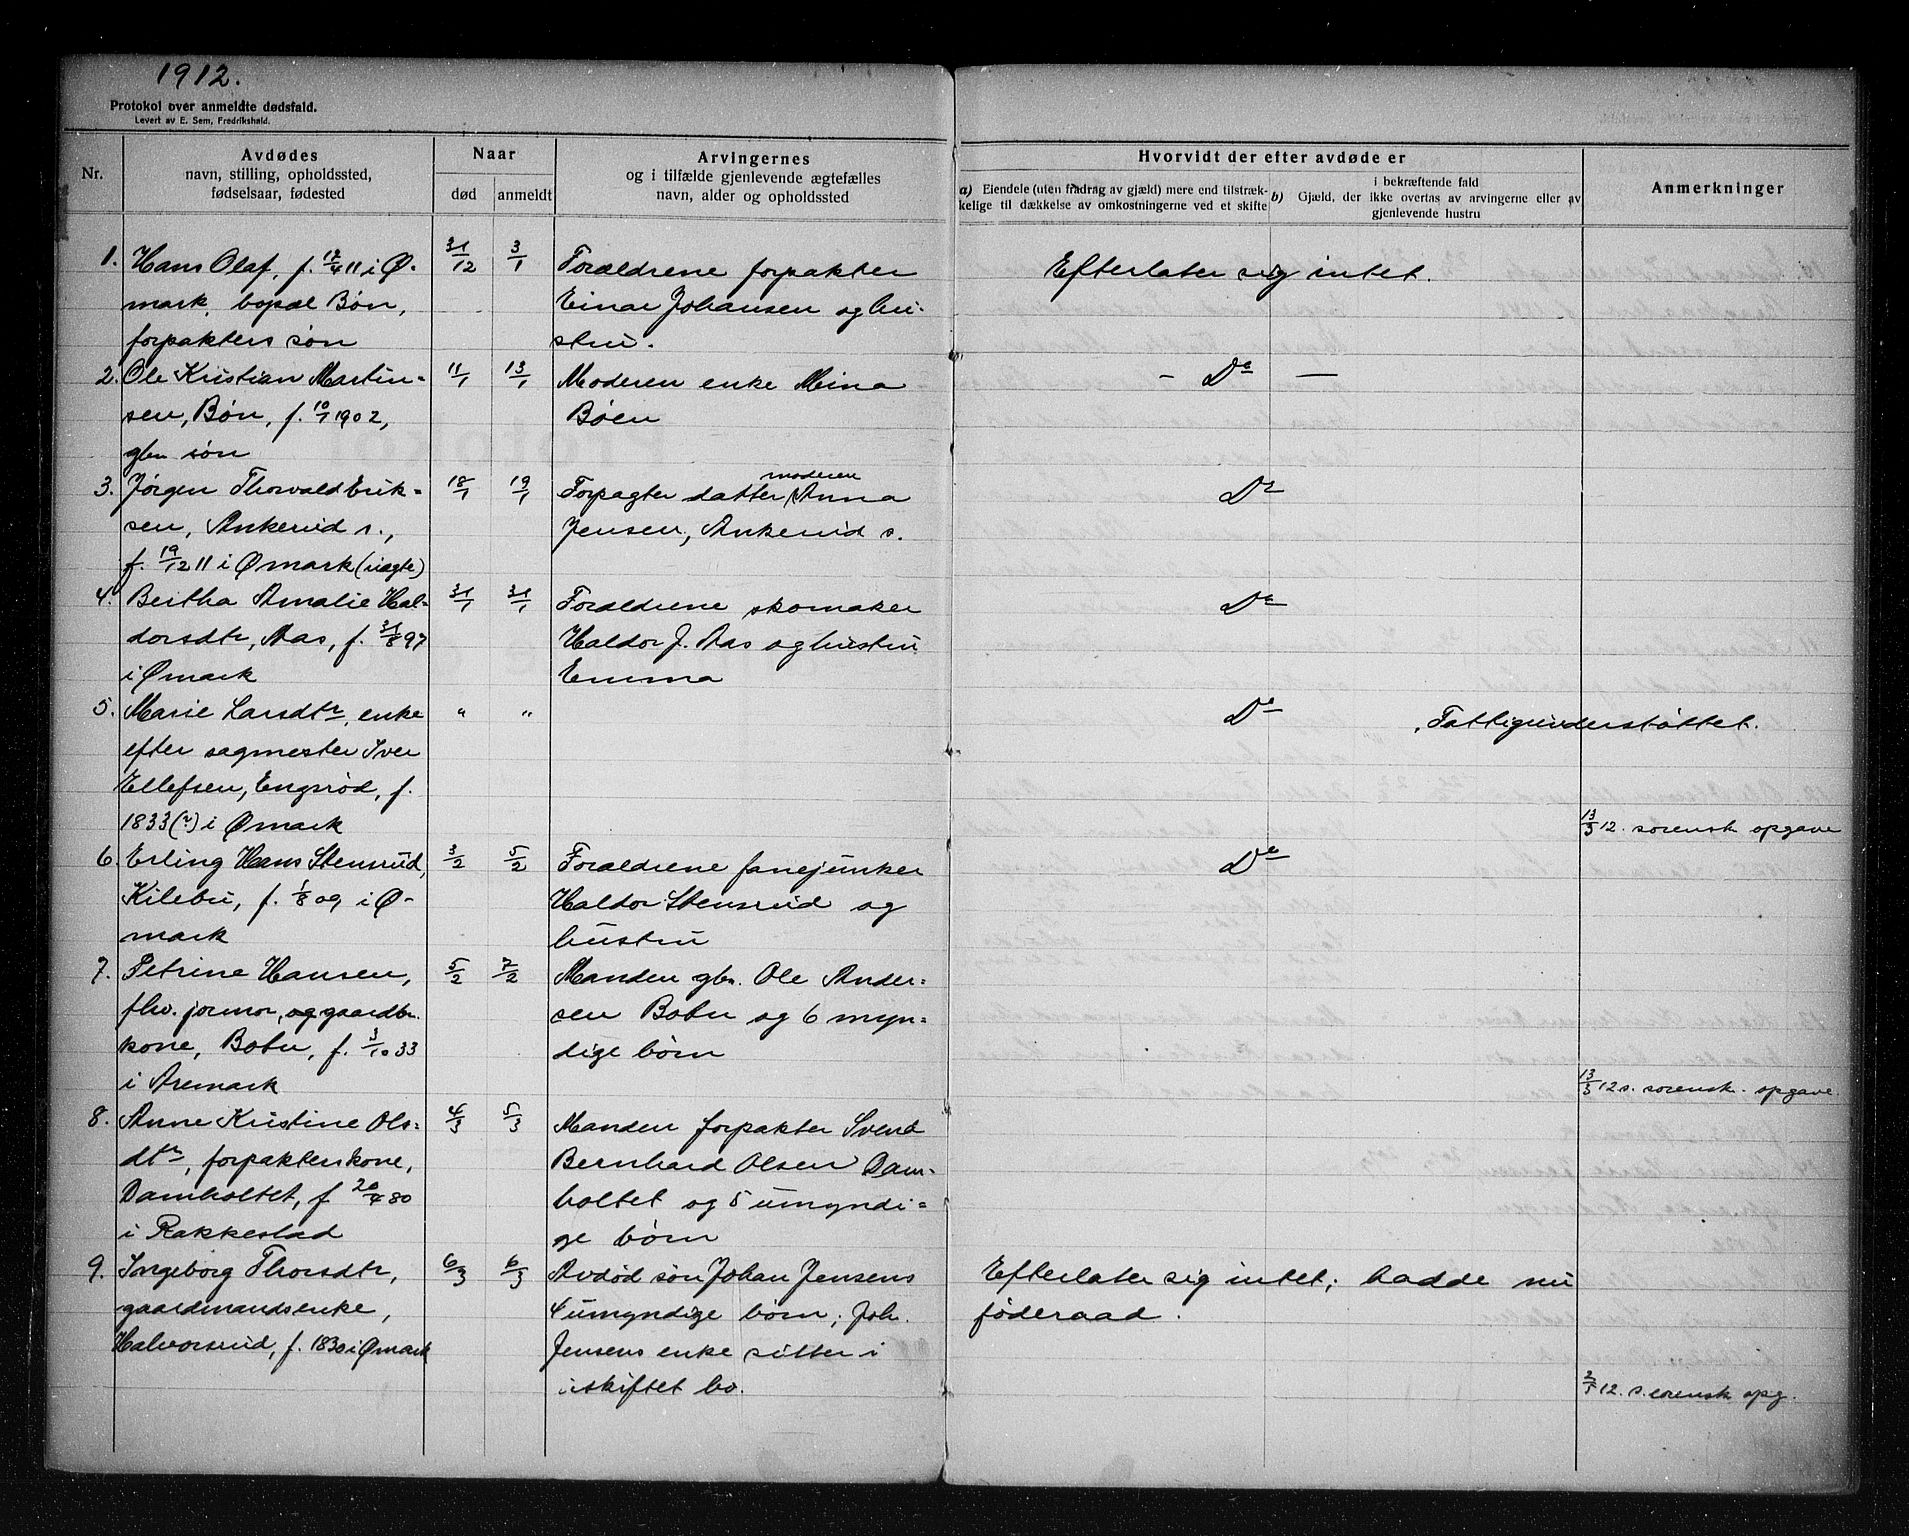 1912.
Protokol over anmeldte dødsfald.
Levert av E. Sem, Fredrikshald.
Nr.
Avdødes
navn, stilling, opholdssted,
fødselsaar, fødested
Naar
død
anmeldt
Arvingernes
og i tilfælde gjenlevende ægtefælles
navn, alder og opholdssted
Hvorvidt der efter avdøde er
a) Eiendele (uten fradrag av gjæld) mere end tilstræk-
kelige til dækkelse av omkostningerne ved et skifte
i bekræftende fald
b) Gjæld, der ikke overtas av arvingerne eller av
gjenlevende hustru
Anmerkninger
1. Hans Olaf, f. 12/4 11 i Ø-
mark, bopæl Bøn,
forpakters søn
31/12
3/1
Forældrene forpakter
Einar Johansen og hu-
stru.
Efterlater sig intet.
2. Ole Kristian Martin-
sen, Bøn, f. 10/1 1902,
gbr. søn
11/1
13/1
Moderen enke Mina
Böen
- Do -
3. Jørgen Thorvald Erik-
sen, Ankerud s.,
f. 19/12 11 i Ømark (uægte)
18/1
19/1
moderen
Forpagter datter Anna
Jensen, Ankerud s.
Do
4. Bertha Amalie Hal-
dorsdtr, Aas, f. 31/8 97
i Ømark
31/1
31/1
Forældrene skomaker
Haldor J. Aas og hustru
Emma
Do
5. Marie Larsdtr, enke
efter sagmester Iver
Ellefsen, Engsrød, f.
1833(?) i Ømark
"
"
Do
Fattigunderstøttet.
6. Erling Hans Stensrud,
Kilebu, f. 1/8 09 i Ø-
mark
3/2
5/2
Forældrene fanejunker
Haldor Stensrud og
hustru
Do
13/3 12. sørensk opgave
7. Petrine Hansen,
fhv. jormor, og gaardbr.
kone, Botn, f. 3/10 33
i Aremark
5/2
7/2
Manden gbr. Ole Ander-
sen Botn og 6 myn-
dige børn
13/3 12 s. sørensk. opgave.
8. Anne Kristine Ols-
dtr, forpakterskone,
Damholtet, f 20/4 80
i Rakkestad
4/3
5/3
Manden forpakter Svend
Bernhard Olsen Dam-
holtet og 5 umyndi-
ge børn
9. Ingeborg Thorsdtr,
gaardmandsenke,
Halvorsrud, f. 1830 i Ømark
6/3
6/3
Avdød søn Johan Jensens
4 umyndige børn; Joh.
Jensens enke sitter i
uskiftet bo.
Efterlater sig intet; hadde nu
føderaad.
2/5 12. s. sørensk opg.